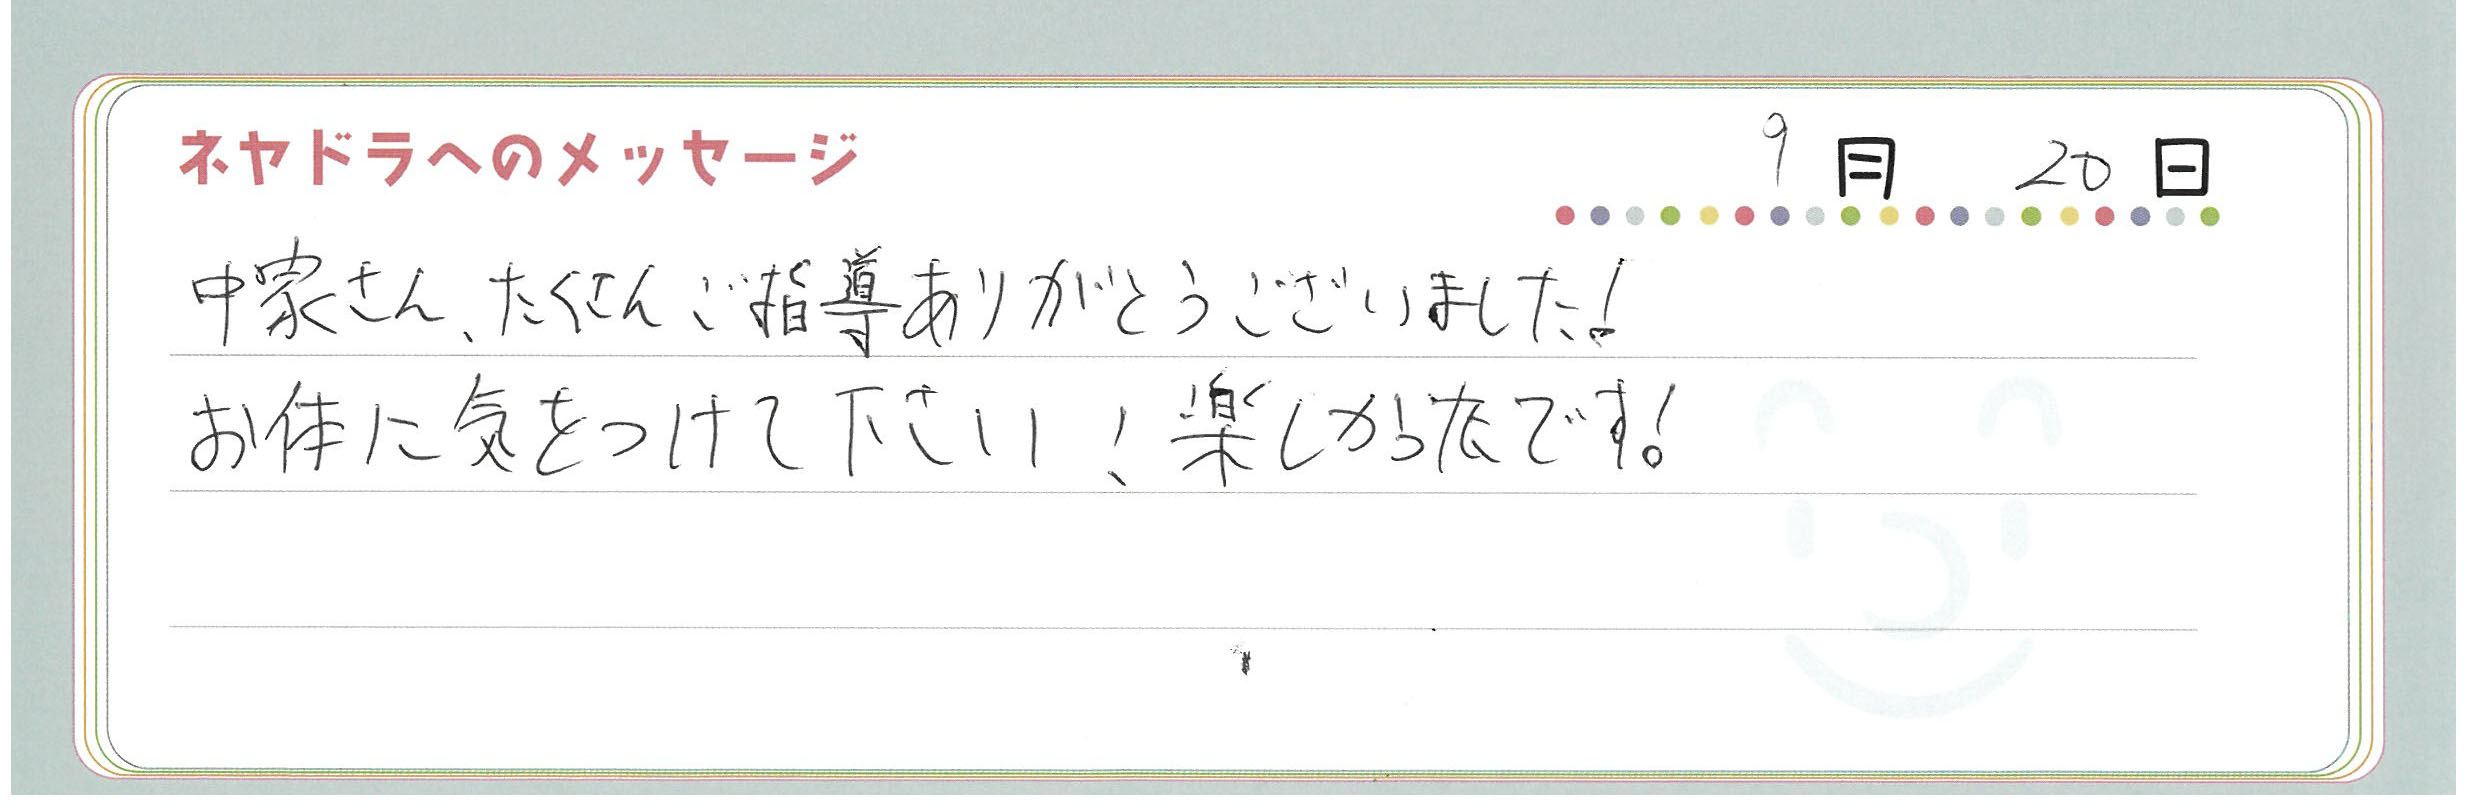 ネヤドラへのメッセージ 9月 20日
中家さん、たくさんご指導ありがとうございました!
お体に気をつけて下さい!楽しかったです!